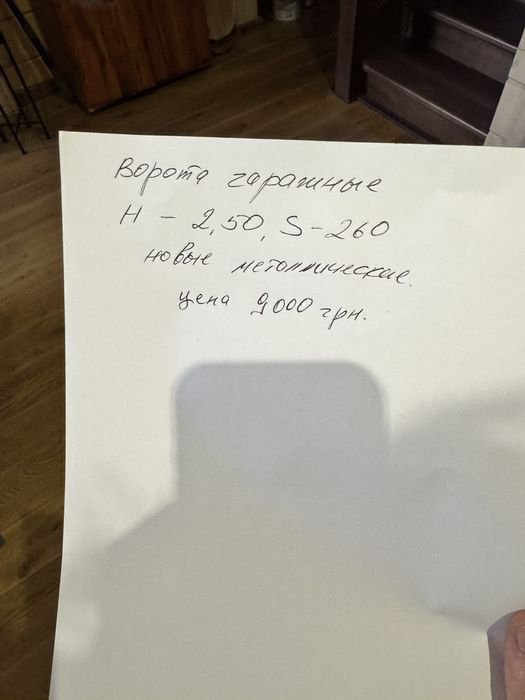 Ворота гаражные
H - 2,50, S - 260
новые металлические.
цена 9000 грн.